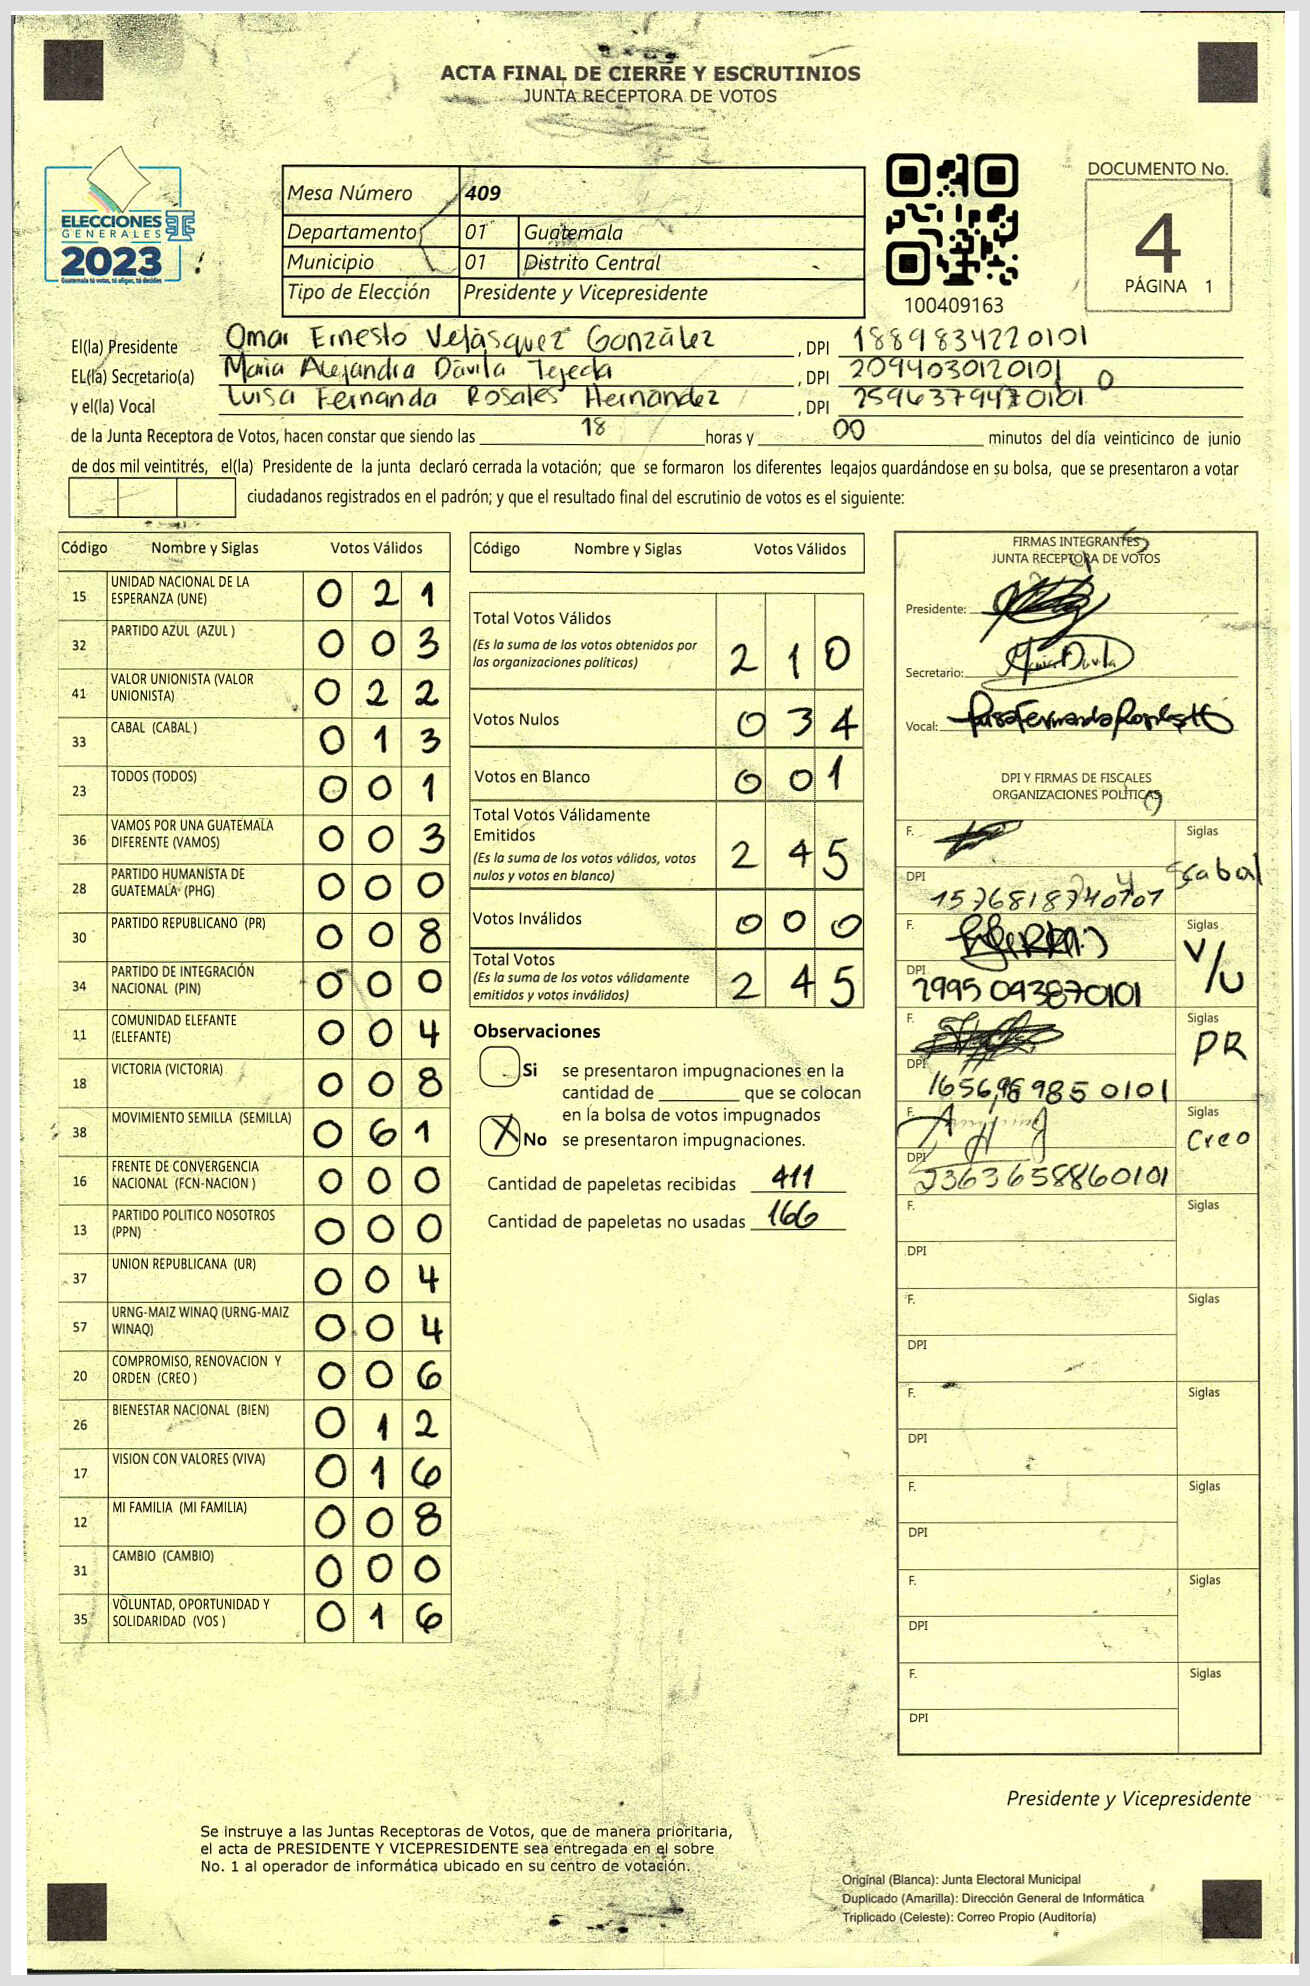 ACTA FINAL DE CIERRE Y ESCRUTINIOS
JUNTA RECEPTORA DE VOTOS
ELECCIONES
GENERALES
2023
Guatemala tú votas, tú eliges, tú decides
Mesa Número 409
Departamento 01 Guatemala
Municipio 01 Distrito Central
Tipo de Elección Presidente y Vicepresidente
100409163
DOCUMENTO No.
4
PÁGINA 1
El(la) Presidente Omar Ernesto Velásquez González , DPI 1889834220101
EL(la) Secretario(a) Maria Alejandra Dávila Tejeda , DPI 2094030120101
y el(la) Vocal Luisa Fernanda Rosales Hernandez , DPI
de la Junta Receptora de Votos, hacen constar que siendo las 18 horas y 00 minutos del día veinticinco de junio
de dos mil veintitrés, el(la) Presidente de la junta declaró cerrada la votación; que se formaron los diferentes legajos guardándose en su bolsa, que se presentaron a votar
ciudadanos registrados en el padrón; y que el resultado final del escrutinio de votos es el siguiente:
Código Nombre y Siglas Votos Válidos
15 UNIDAD NACIONAL DE LA ESPERANZA (UNE) 0 2 1
32 PARTIDO AZUL (AZUL ) 0 0 3
41 VALOR UNIONISTA (VALOR UNIONISTA) 0 2 2
33 CABAL (CABAL ) 0 1 3
23 TODOS (TODOS) 0 0 1
36 VAMOS POR UNA GUATEMALA DIFERENTE (VAMOS) 0 0 3
28 PARTIDO HUMANISTA DE GUATEMALA (PHG) 0 0 0
30 PARTIDO REPUBLICANO (PR) 0 0 8
34 PARTIDO DE INTEGRACIÓN NACIONAL (PIN) 0 0 0
11 COMUNIDAD ELEFANTE (ELEFANTE) 0 0 4
18 VICTORIA (VICTORIA) 0 0 8
38 MOVIMIENTO SEMILLA (SEMILLA) 0 6 1
16 FRENTE DE CONVERGENCIA NACIONAL (FCN-NACION ) 0 0 0
13 PARTIDO POLITICO NOSOTROS (PPN) 0 0 0
37 UNION REPUBLICANA (UR) 0 0 4
57 URNG-MAIZ WINAQ (URNG-MAIZ WINAQ) 0 0 4
20 COMPROMISO, RENOVACION Y ORDEN (CREO ) 0 0 6
26 BIENESTAR NACIONAL (BIEN) 0 1 2
17 VISION CON VALORES (VIVA) 0 1 6
12 MI FAMILIA (MI FAMILIA) 0 0 8
31 CAMBIO (CAMBIO) 0 0 0
35 VOLUNTAD, OPORTUNIDAD Y SOLIDARIDAD (VOS ) 0 1 6
Código Nombre y Siglas Votos Válidos
Total Votos Válidos 2 1 0
(Es la suma de los votos obtenidos por
las organizaciones políticas)
Votos Nulos 0 3 4
Votos en Blanco 0 0 1
Total Votos Válidamente
Emitidos 2 4 5
(Es la suma de los votos válidos, votos
nulos y votos en blanco)
Votos Inválidos 0 0 0
Total Votos 2 4 5
(Es la suma de los votos válidamente
emitidos y votos inválidos)
Observaciones
Si se presentaron impugnaciones en la
cantidad de ________ que se colocan
en la bolsa de votos impugnados
X No se presentaron impugnaciones.
Cantidad de papeletas recibidas 411
Cantidad de papeletas no usadas 166
FIRMAS INTEGRANTES
JUNTA RECEPTORA DE VOTOS
Presidente:
Secretario: Maria Dávila
Vocal:
DPI Y FIRMAS DE FISCALES
ORGANIZACIONES POLÍTICAS
F. Siglas
DPI cabal
F. Siglas
V/U
DPI 2995093870101
F. Siglas
PR
DPI
F. Siglas
Creo
DPI 2363658860101
F. Siglas
DPI
F. Siglas
DPI
F. Siglas
DPI
F. Siglas
DPI
F. Siglas
DPI
F. Siglas
DPI
Presidente y Vicepresidente
Se instruye a las Juntas Receptoras de Votos, que de manera prioritaria,
el acta de PRESIDENTE Y VICEPRESIDENTE sea entregada en el sobre
No. 1 al operador de informática ubicado en su centro de votación.
Original (Blanca): Junta Electoral Municipal
Duplicado (Amarilla): Dirección General de Informática
Triplicado (Celeste): Correo Propio (Auditoría)